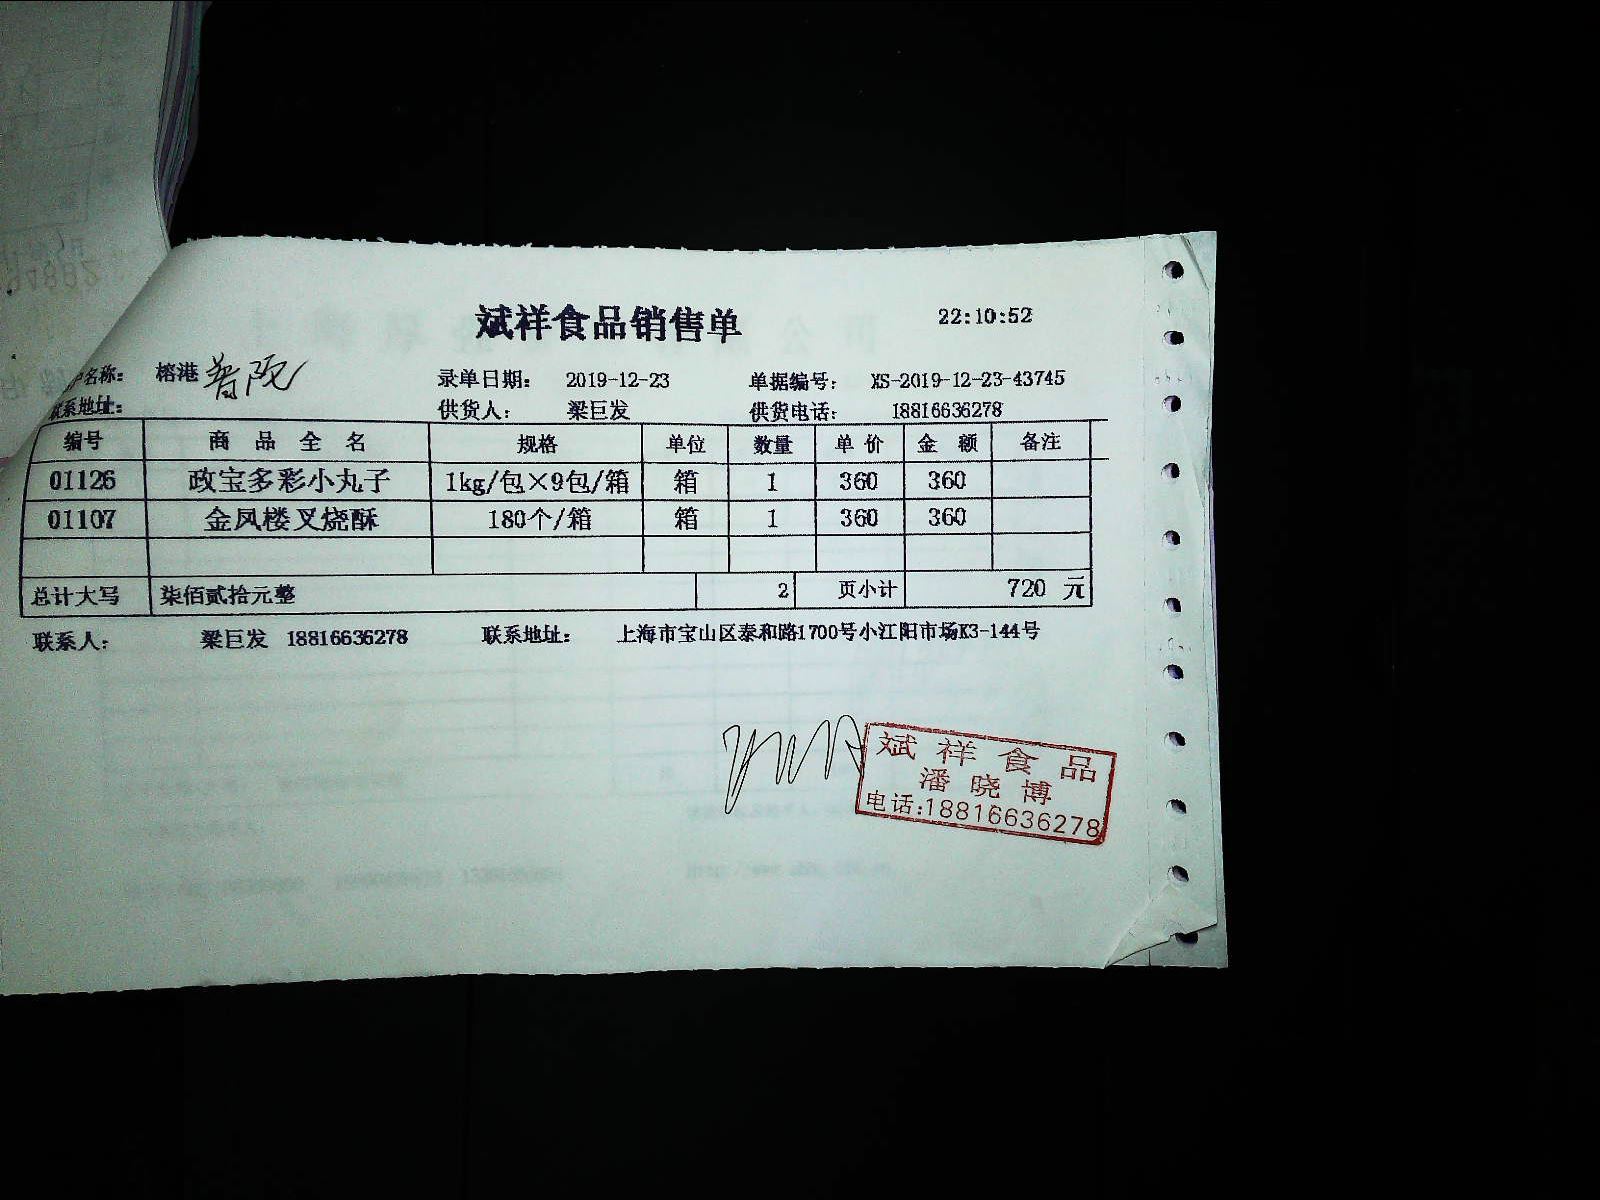 斌祥食品销售单 22:10:52
户名称： 榕港 普陀 录单日期： 2019-12-23 单据编号： XS-2019-12-23-43745
联系地址： 供货人： 梁巨发 供货电话： 18816636278
编号 商品全名 规格 单位 数量 单价 金额 备注
01126 政宝多彩小丸子 1kg/包×9包/箱 箱 1 360 360
01107 金凤楼叉烧酥 180个/箱 箱 1 360 360
总计大写 柒佰贰拾元整 2 页小计 720 元
联系人： 梁巨发 18816636278 联系地址： 上海市宝山区泰和路1700号小江阳市场K3-144号
斌祥食品
潘晓博
电话:18816636278